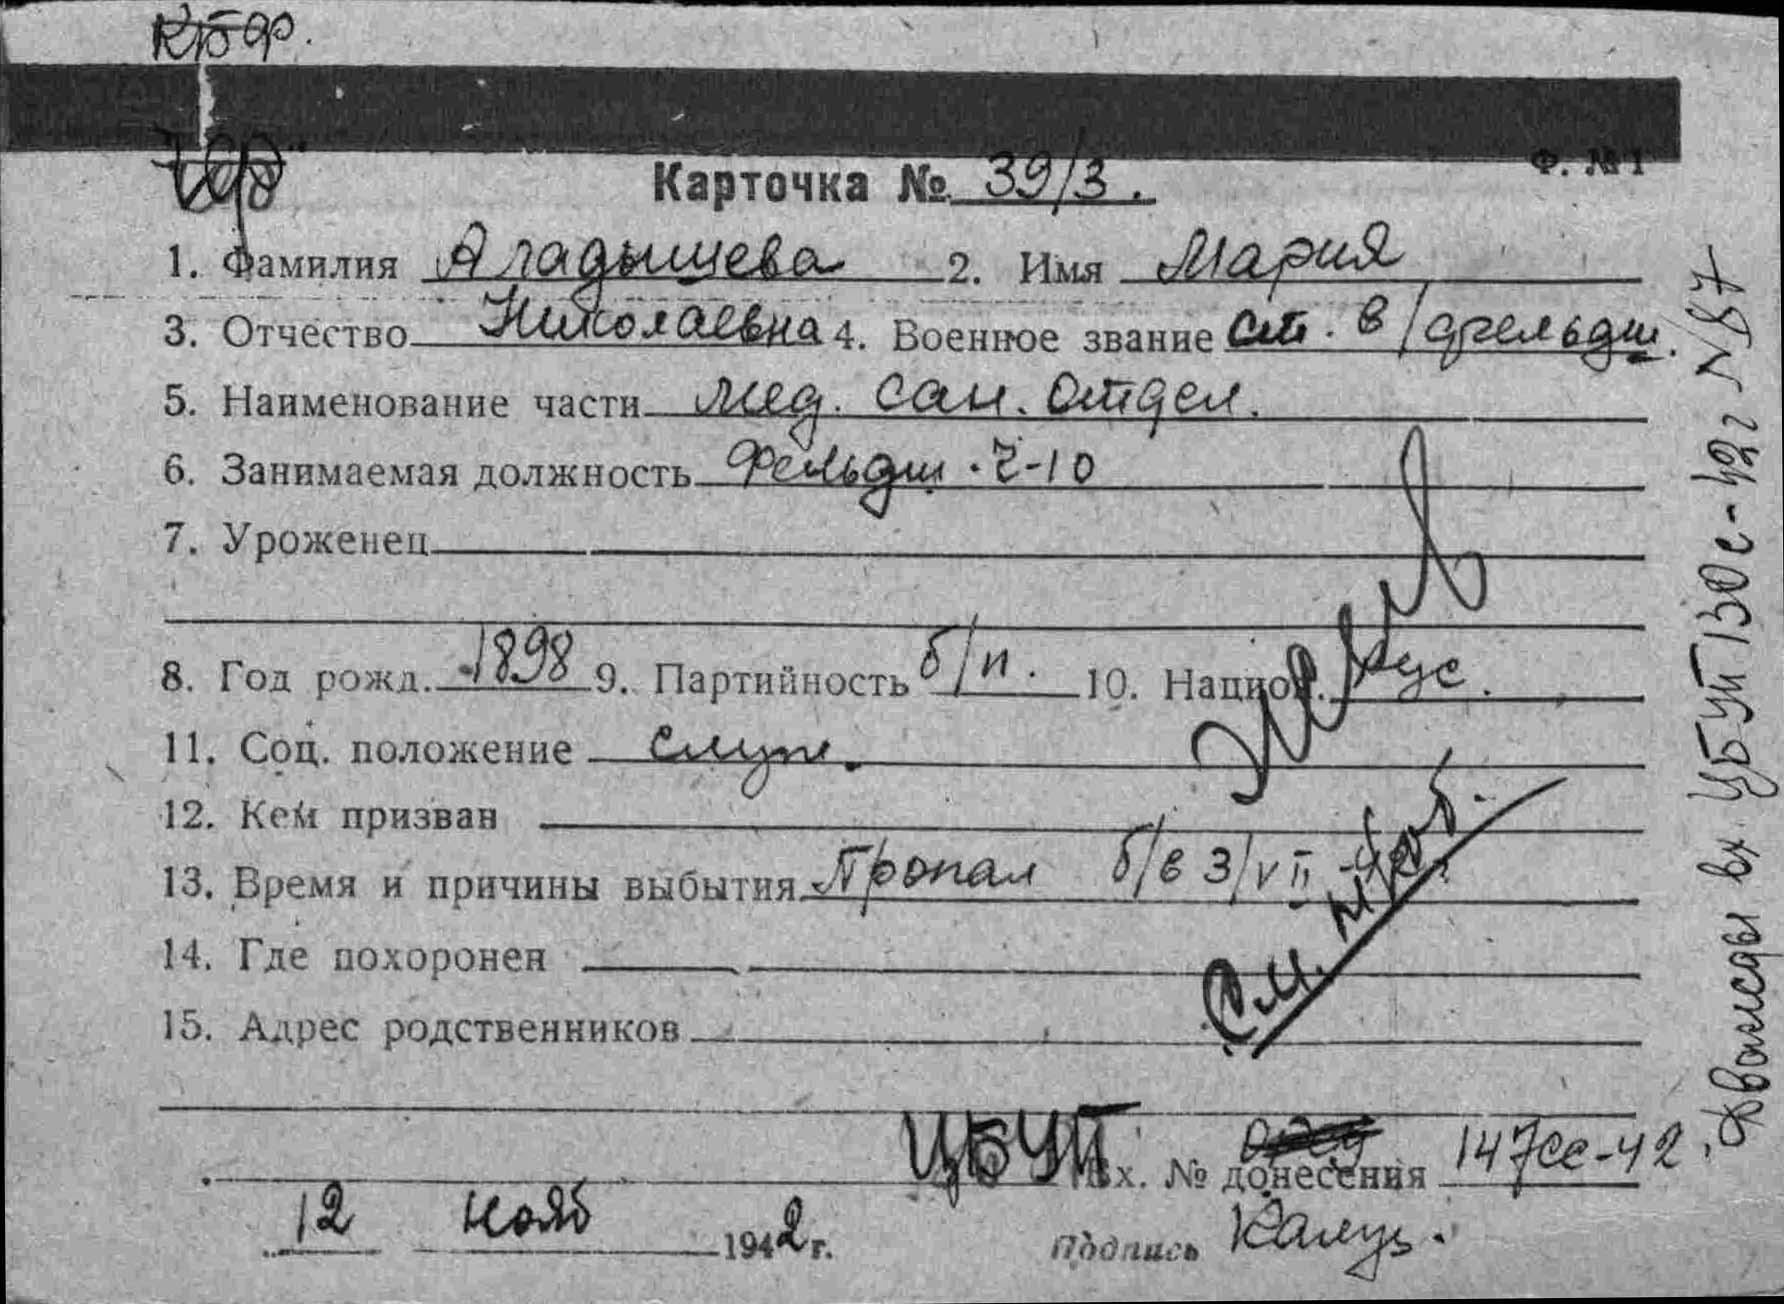 Ф. № 1
Карточка № 39/3.
1. Фамилия Аладышева 2. Имя Мария
3. Отчество Николаевна 4. Военное звание ст. в/фельдш.
5. Наименование части мед. сан. отдел.
6. Занимаемая должность Фельдш.
7. Уроженец
8. Год рожд. 1898 9. Партийность б/п. 10. Национ. Рус.
11. Соц. положение служ.
12. Кем призван
13. Время и причины выбытия Пропал б/в 3/VII-42
14. Где похоронен
15. Адрес родственников
См.
ЦБУП Вх. № донесения 147сс-42
12 нояб 1942 г. Подпись
Дважды вх ЦБУП 130с-42г №87